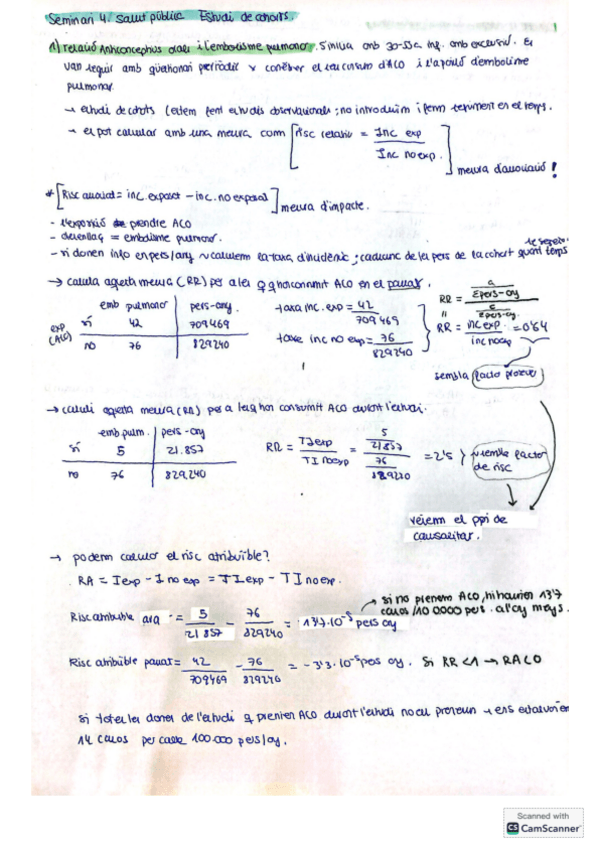 Seminari 4. Salut pública Estudi de cohorts.
1
1) relació Anticonceptius orals i l'embolisme pulmonar. S'inicia amb 30-55a inf. amb exclusió. Es
van seguir amb qüestionari periòdic x conèixer el seu consum d'ACO i l'aparició d'embolisme
pulmonar.
→ estudi de cohorts (estem fent estudis observacionals: no introduïm i fem seguiment en el temps.
→ es pot calcular amb una mesura com [risc relatiu = Inc exp / Inc no exp.] mesura d'associació !
* [Risc atribuible = inc. exposat - inc. no exposat] mesura d'impacte.
- l'exposició prendre ACO
- desenllaç = embolisme pulmonar.
- si donen info en pers/any calculem la taxa d'incidència; cadascuna de les pers de la cohort quant temps
te segueix
→ calcula aquesta mesura (RR) per a les q han consumit ACO en el passat.
emb pulmonar pers-any.
exp (ACO)
sí 42 709469
no 76 829240
taxa inc. exp = 42 / 709469
taxa inc no exp = 76 / 829240
RR = a / Σpers-any / c / Σpers-any
RR = inc exp. / inc no exp = 0'64
sembla factor protector
→ calculi aquesta mesura (RR) per a les q han consumit ACO durant l'estudi.
emb pulm. pers-any
sí 5 21.857
no 76 829240
RR = TI exp / TI no exp = 5 / 21857 / 76 / 829240 = 2'5 } sembla factor de risc
veiem el ppi de
causalitat.
→ podem calcular el risc atribuïble?
RA = I exp - I no exp = TI exp - TI no exp.
Risc atribuïble ara = 5 / 21857 - 76 / 829240 = 13'7·10⁻⁵ pers any
→ si no prenem ACO, hi haurien 13'7
casos/100.000 pers. a l'any menys.
Risc atribuïble passat = 42 / 709469 - 76 / 829240 = -3'3·10⁻⁵ pers any. Si RR<1 → RA<0
si totes les dones de l'estudi q prenien ACO durant l'estudi no en prenessin → ens estalviaríem
14 casos per cada 100.000 pers/any.
Scanned with
CS CamScanner